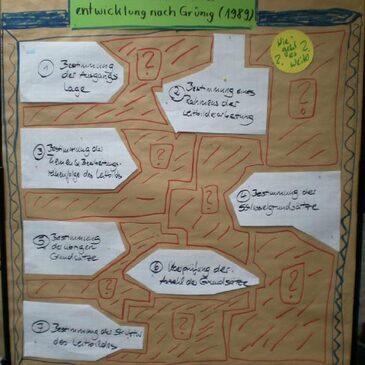 entwicklung nach Grünig (1989)
Wie
geht
? es ?
weiter
?
1 Bestimmung
der Ausgangs
lage
?
2 Bestimmung eines
Rahmens der
Leitbilderarbeitung
3 Bestimmung der
Themen & Bearbeitungs
reihenfolge des Leitbilds
?
?
4 Bestimmung der
Schlüsselgrundsätze
5 Bestimmung
der übrigen
Grundsätze
?
6 Überprüfung der
Anzahl der Grundsätze
?
7 Bestimmung der Struktur
des Leitbildes
?